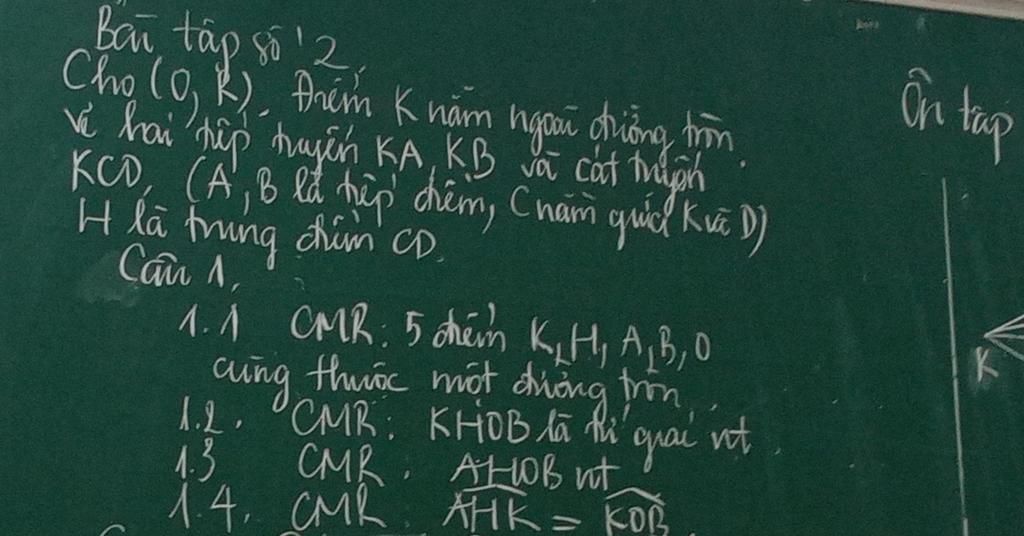 Bài tập số 2
Cho (O, R). Điểm K nằm ngoài đường tròn.
vẽ hai tiếp tuyến KA, KB và cát tuyến
KCD, (A, B là tiếp điểm, C nằm giữa K và D)
H là trung điểm CD.
Câu 1,
1.1 CMR: 5 điểm K, H, A, B, O
cùng thuộc một đường tròn
1.2. CMR: KHOB là tứ giác nt
1.3 CMR. AHOB nt
1.4. CMR AHK = KOB
Ôn tập
K